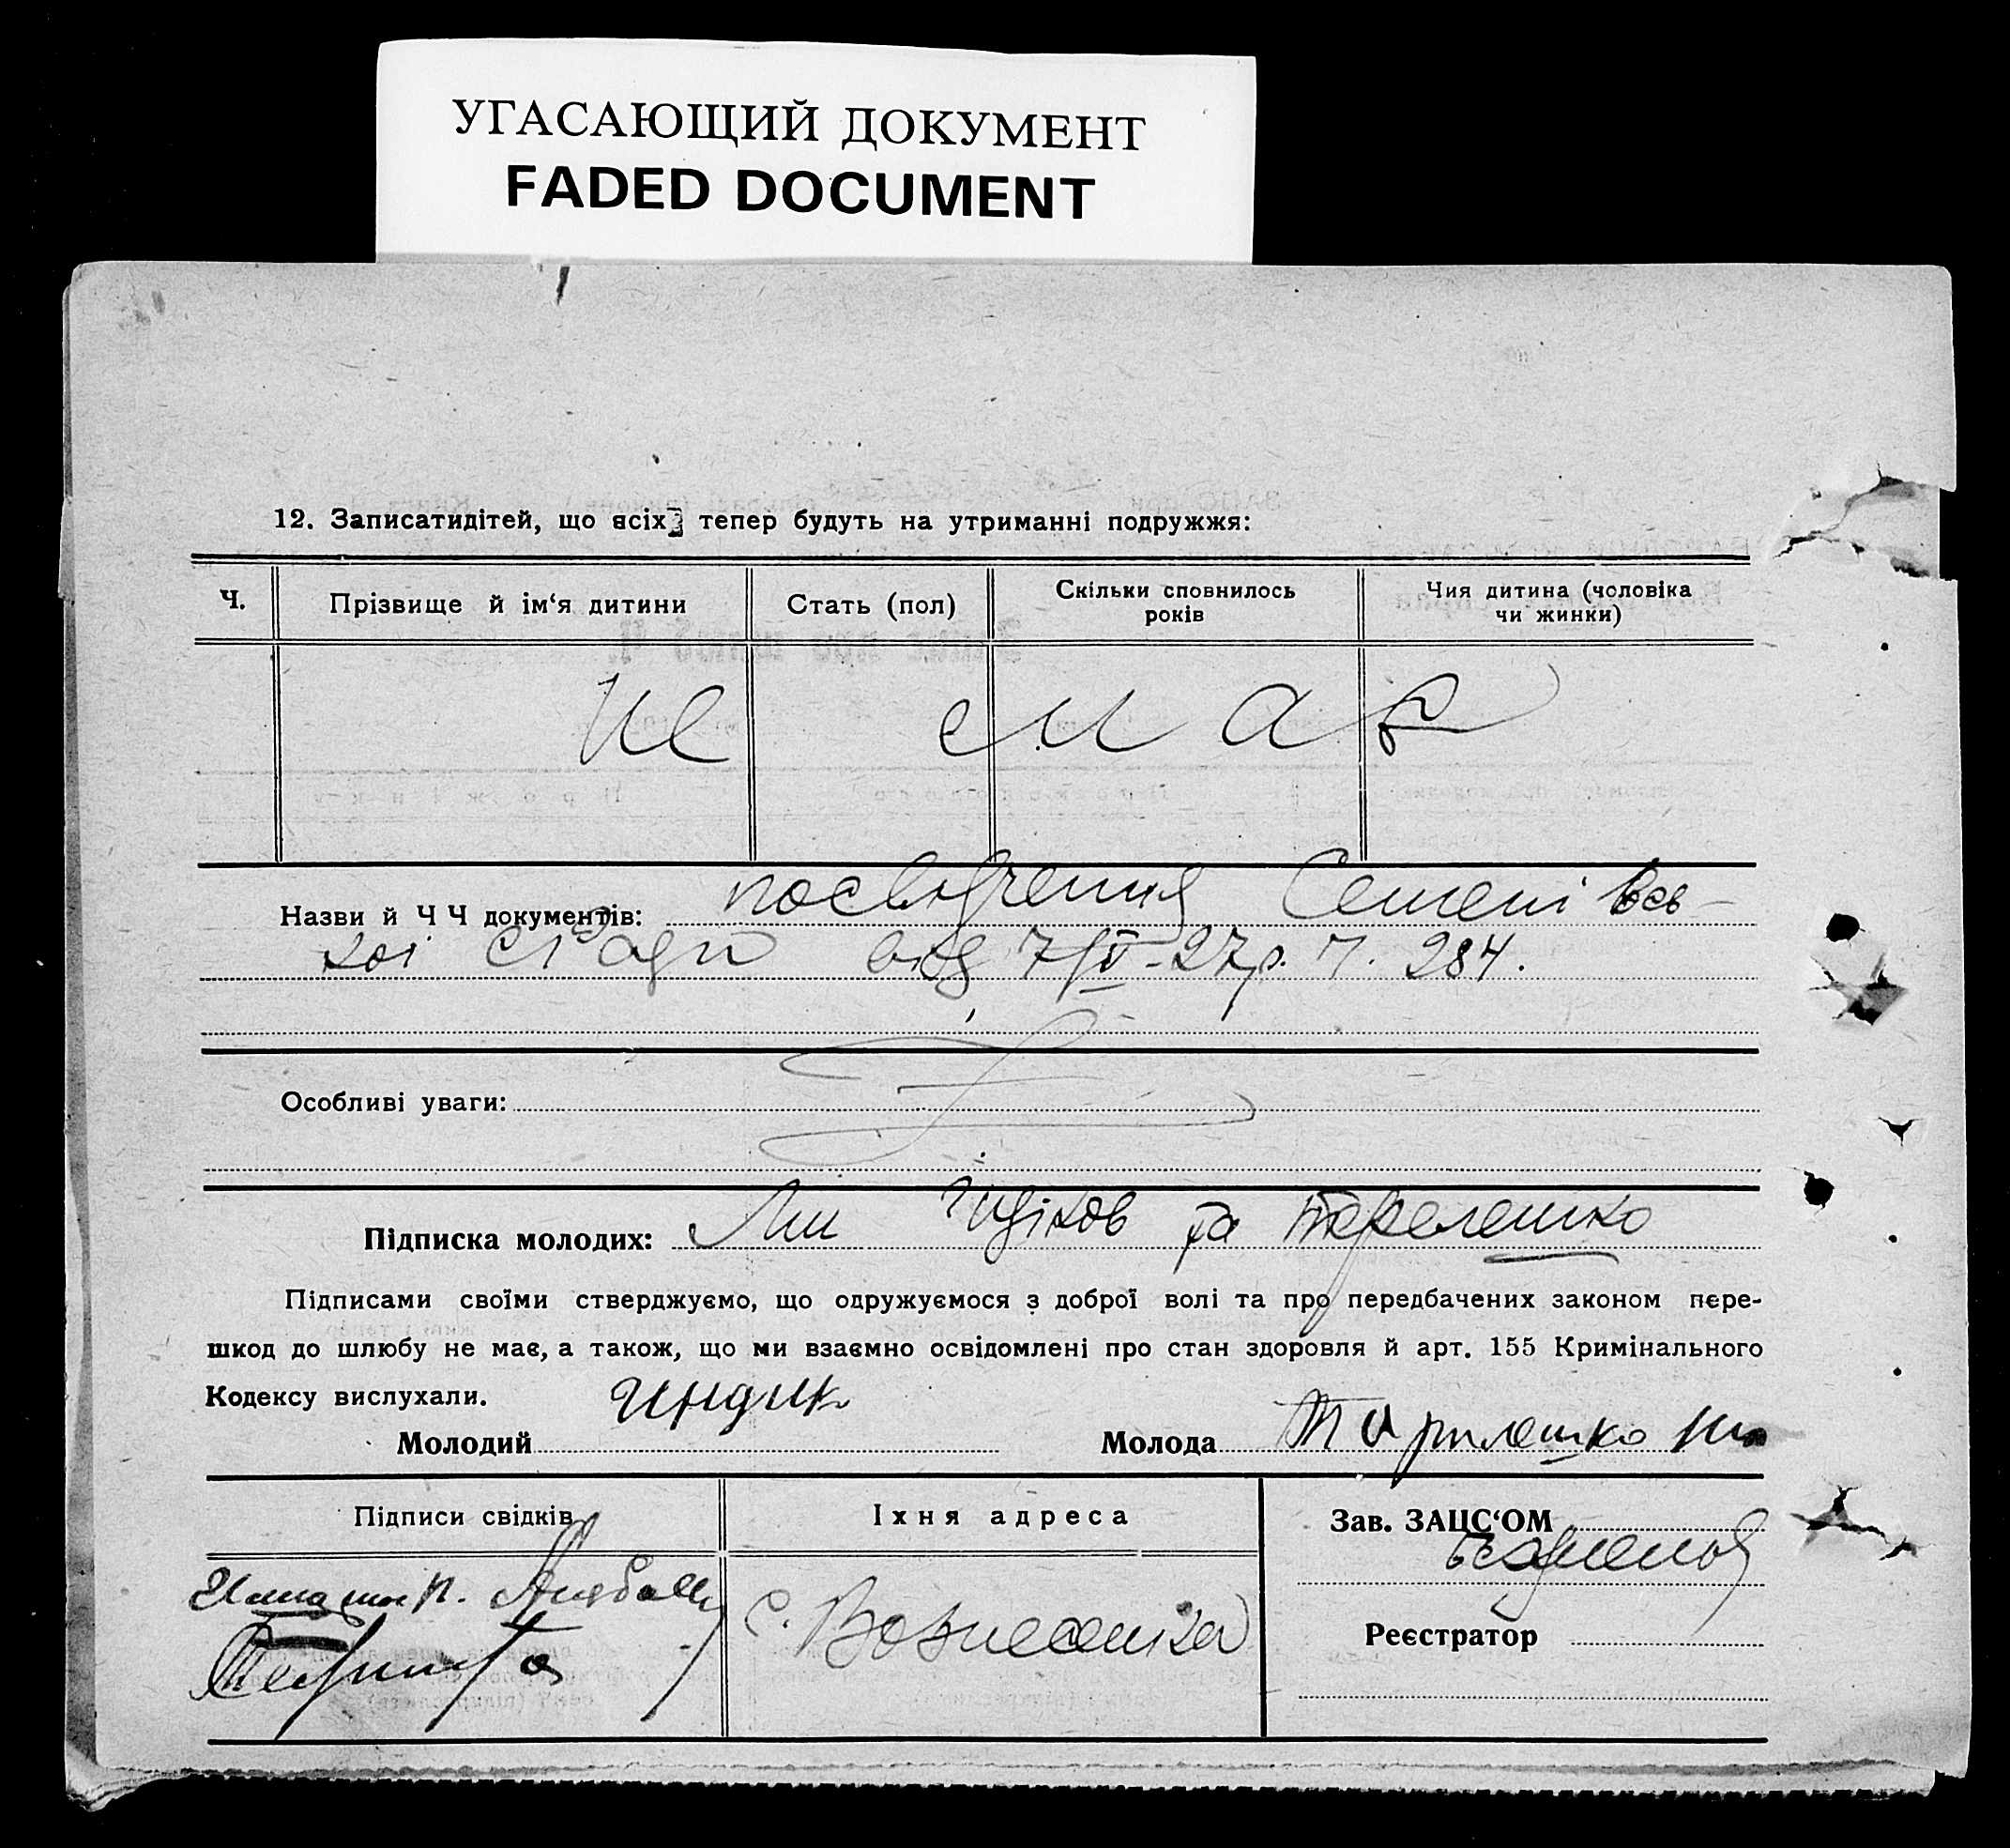 УГАСАЮЩИЙ ДОКУМЕНТ
FADED DOCUMENT
12. Записатидітей, що всіх тепер будуть на утриманні подружжя:
Ч.
Прізвище й ім‘я дитини
Стать (пол)
Скільки сповнилось
років
Чия дитина (чоловіка
чи жинки)
не має
Назви й Ч Ч документів: посвідчення Семенівсь-
кої с/ради від 7/II-27р. Ч. 284.
Особливі уваги:
Підписка молодих: Ми та
Підписами своїми стверджуємо, що одружуємося з доброї волі та про передбачених законом пере-
шкод до шлюбу не має, а також, що ми взаємно освідомлені про стан здоровля й арт. 155 Кримінального
Кодексу вислухали.
Молодий Индик
Молода
Підписи свідків
Їхня адреса
Зав. ЗАЦС‘ОМ
с. Вознесенка
Реєстратор